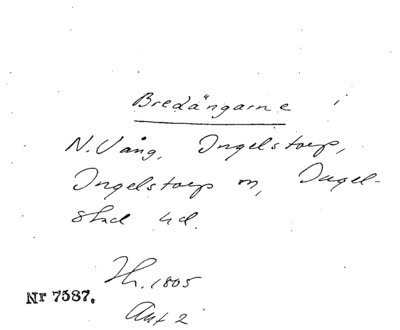 Bredängarne
N. Vång, Ingelstorp,
Ingelstorp sn, Ingel-
stad hd.
Th. 1805
Akt 2
Nr 7587.